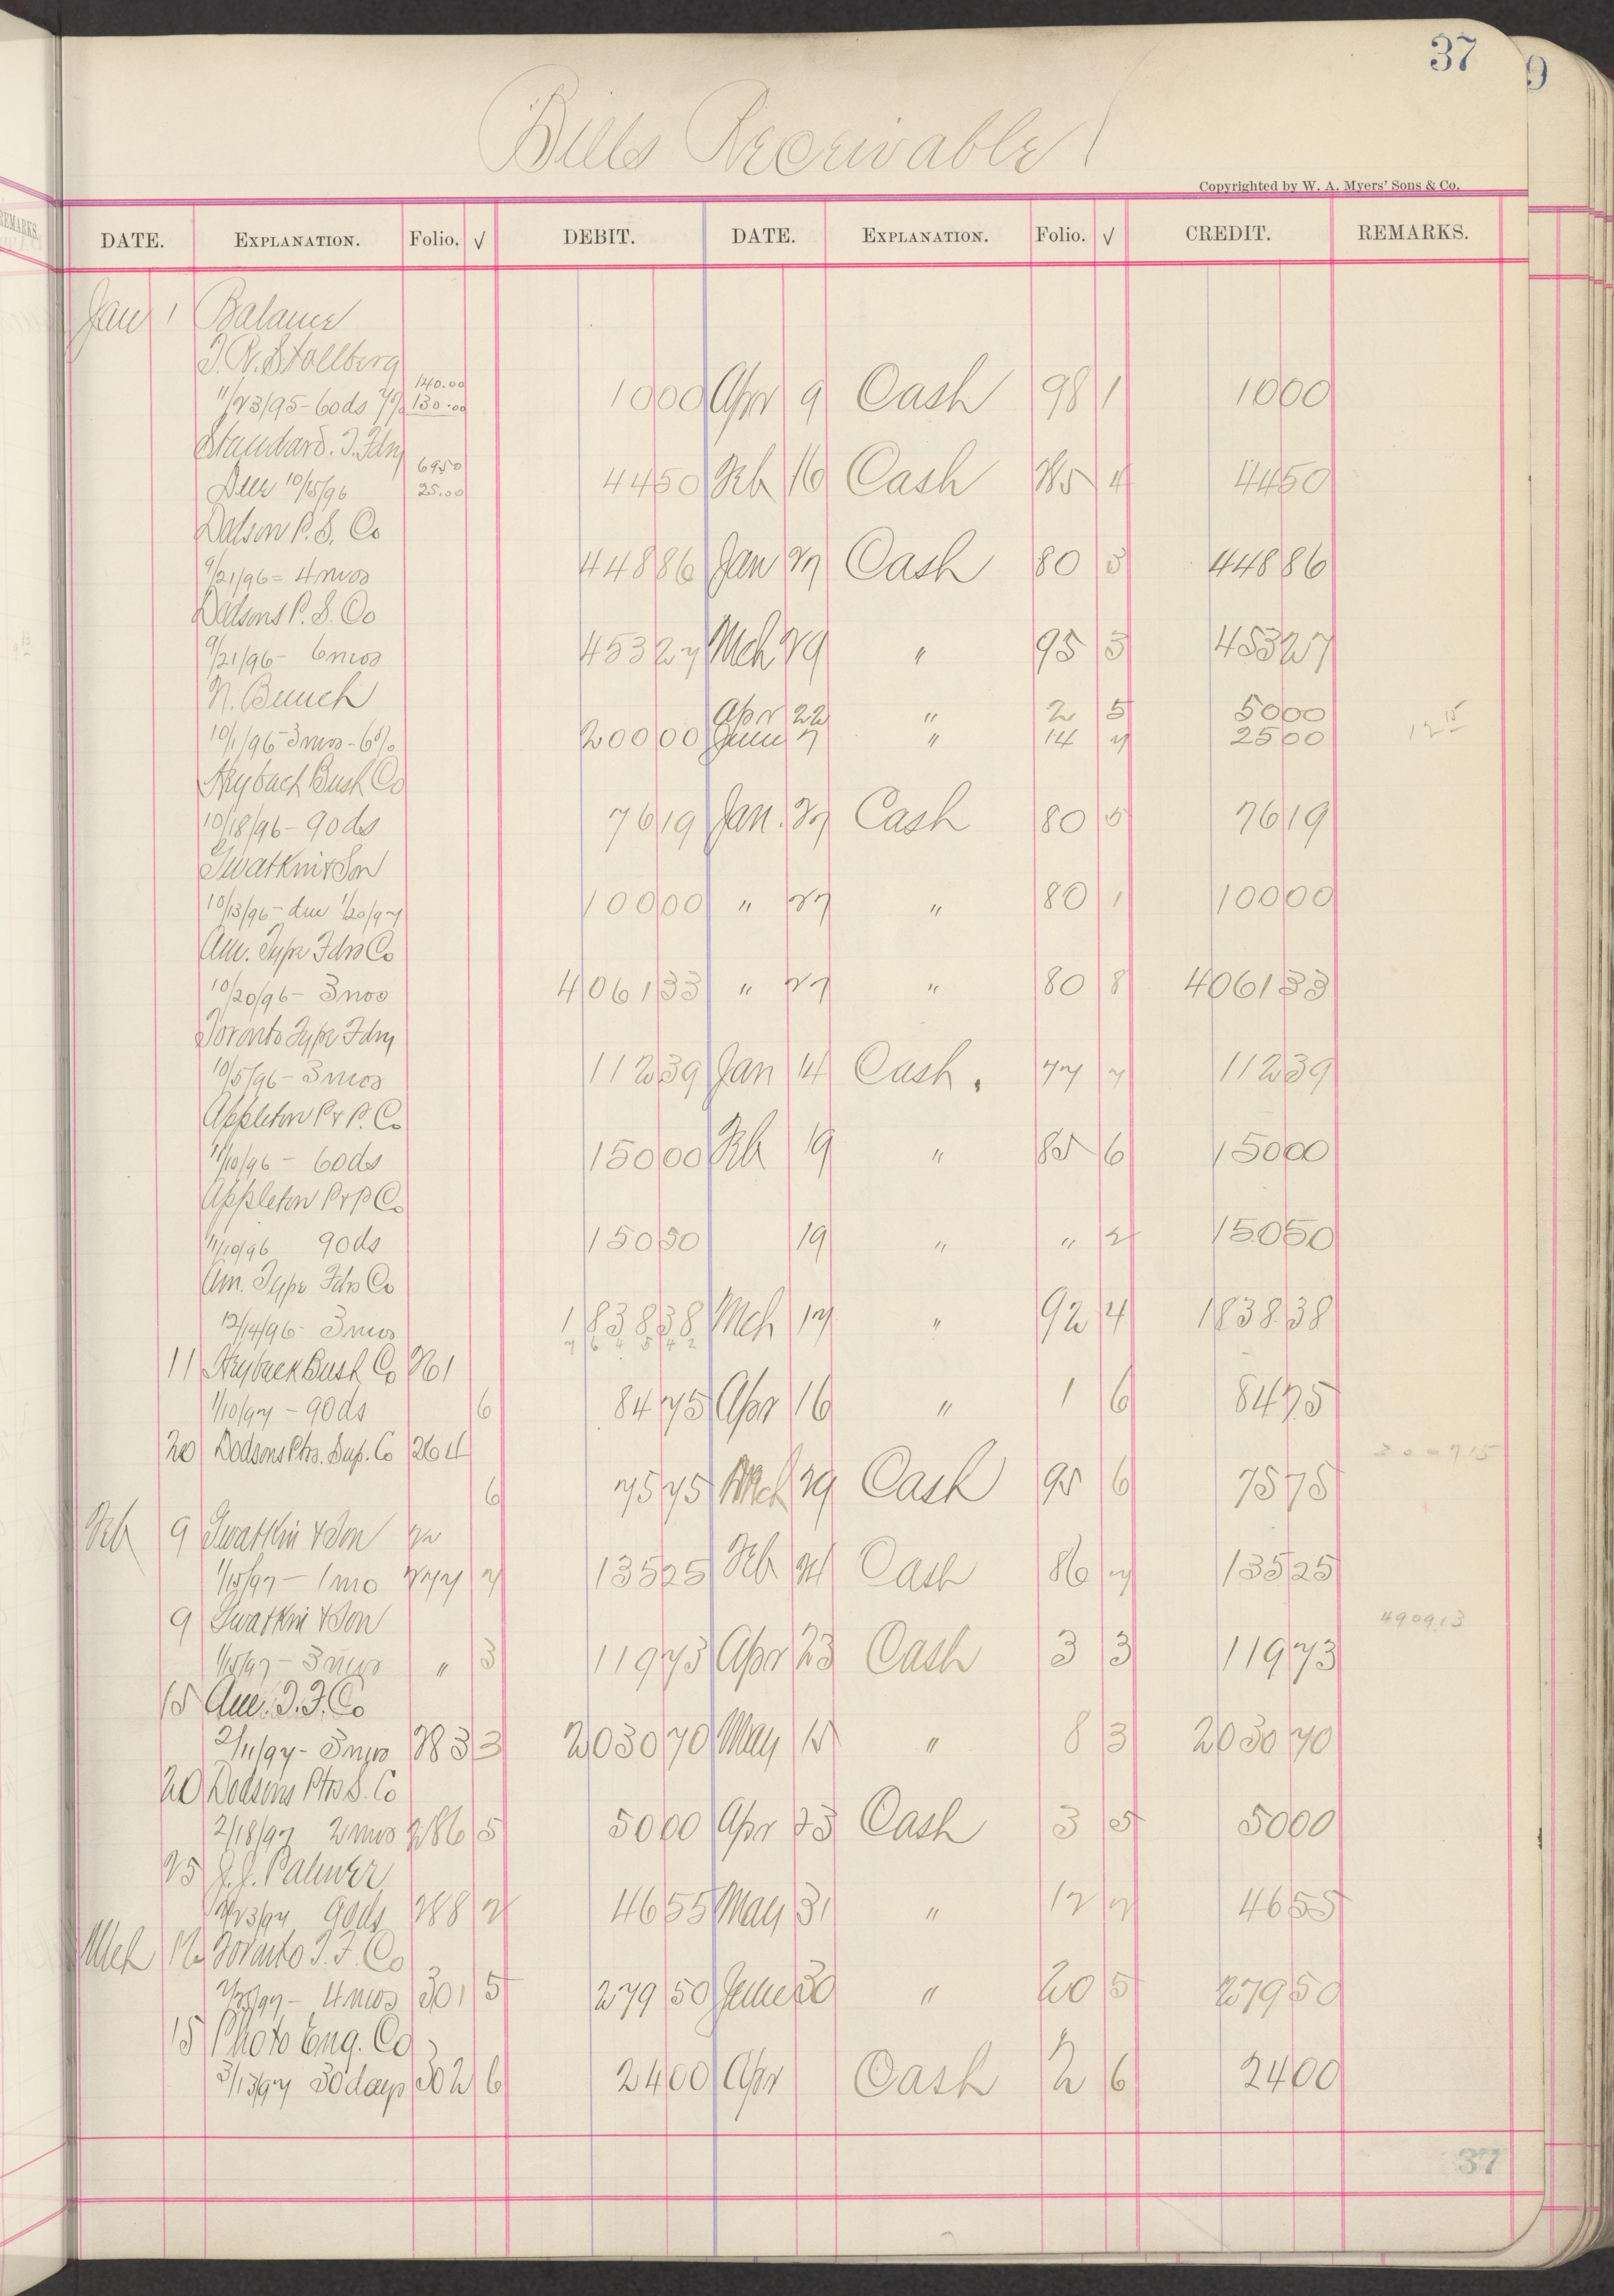 37
9
Bills Receivable
Copyrighted by W. A. Myers' Sons & Co.
REMARKS.
DATE. EXPLANATION. Folio. √ DEBIT. DATE. EXPLANATION. Folio. √ CREDIT. REMARKS.
Jan 1 Balance
Stallberg 140.00
11/23/95 - 60ds 7% 130.00 1000 Apr 9 Cash 98 1 1000
Standard. T. Fdry 69.50
10/15/96 25.00 4450 Feb 16 Cash 85 4 4450
Dodson P. S. Co
9/21/96 = 4 mos 44886 Jan 27 Cash 80 3 44886
Dodsons P. S. Co
9/21/96 - 6 mos 45327 Mch 29 " 95 3 45327
N. Bunch Apr 22 " 2 5 5000
10/1/96 3 mos - 6% 20000 June 7 " 14 7 2500 12 15
Bush Co
10/18/96 - 90ds 7619 Jan. 27 Cash 80 5 7619
Gwatkin & Son
10/13/96 - due 1/20/97 10000 " 27 " 80 1 10000
Am. Type Fdrs Co
10/20/96 - 3 mos 406133 " 27 " 80 8 406133
Toronto Type Fdry
10/5/96 - 3 mos 11239 Jan 14 Cash. 77 7 11239
Appleton P & P. Co
11/10/96 - 60ds 15000 Feb 19 " 85 6 15000
Appleton P & P Co
11/10/96 90ds 15050 19 " " 2 15050
Am. Type Fdrs Co
12/14/96 - 3 mos 183838 Mch 17 " 92 4 183838
7 6 4 5 4 2
11 Bush Co 261
1/10/97 - 90ds 6 8475 Apr 16 " 1 6 8475
20 Dodsons Ptrs. Sup. Co 264 30 0 7 15
6 7575 Mch 29 Cash 95 6 7575
Feb 9 Gwatkin & Son
1/15/97 - 1 mo 277 7 13525 Feb 24 Cash 86 7 13525
9 Gwatkin & Son 4909.13
1/15/97 - 3 mos " 3 11973 Apr 23 Cash 3 3 11973
15 Am. T. F. Co
2/11/97 - 3 mos 283 3 203070 May 15 " 8 3 203070
20 Dodsons Ptrs S. Co
2/18/97 2 mos 286 5 5000 Apr 23 Cash 3 5 5000
25 Palmer
2/23/97 90ds 288 2 4655 May 31 " 12 2 4655
Mch 12 Toronto T. F. Co
4 mos 301 5 27950 June 30 " 20 5 27950
15 Photo Eng. Co
3/13/97 30 days 302 6 2400 Apr Cash 2 6 2400
37